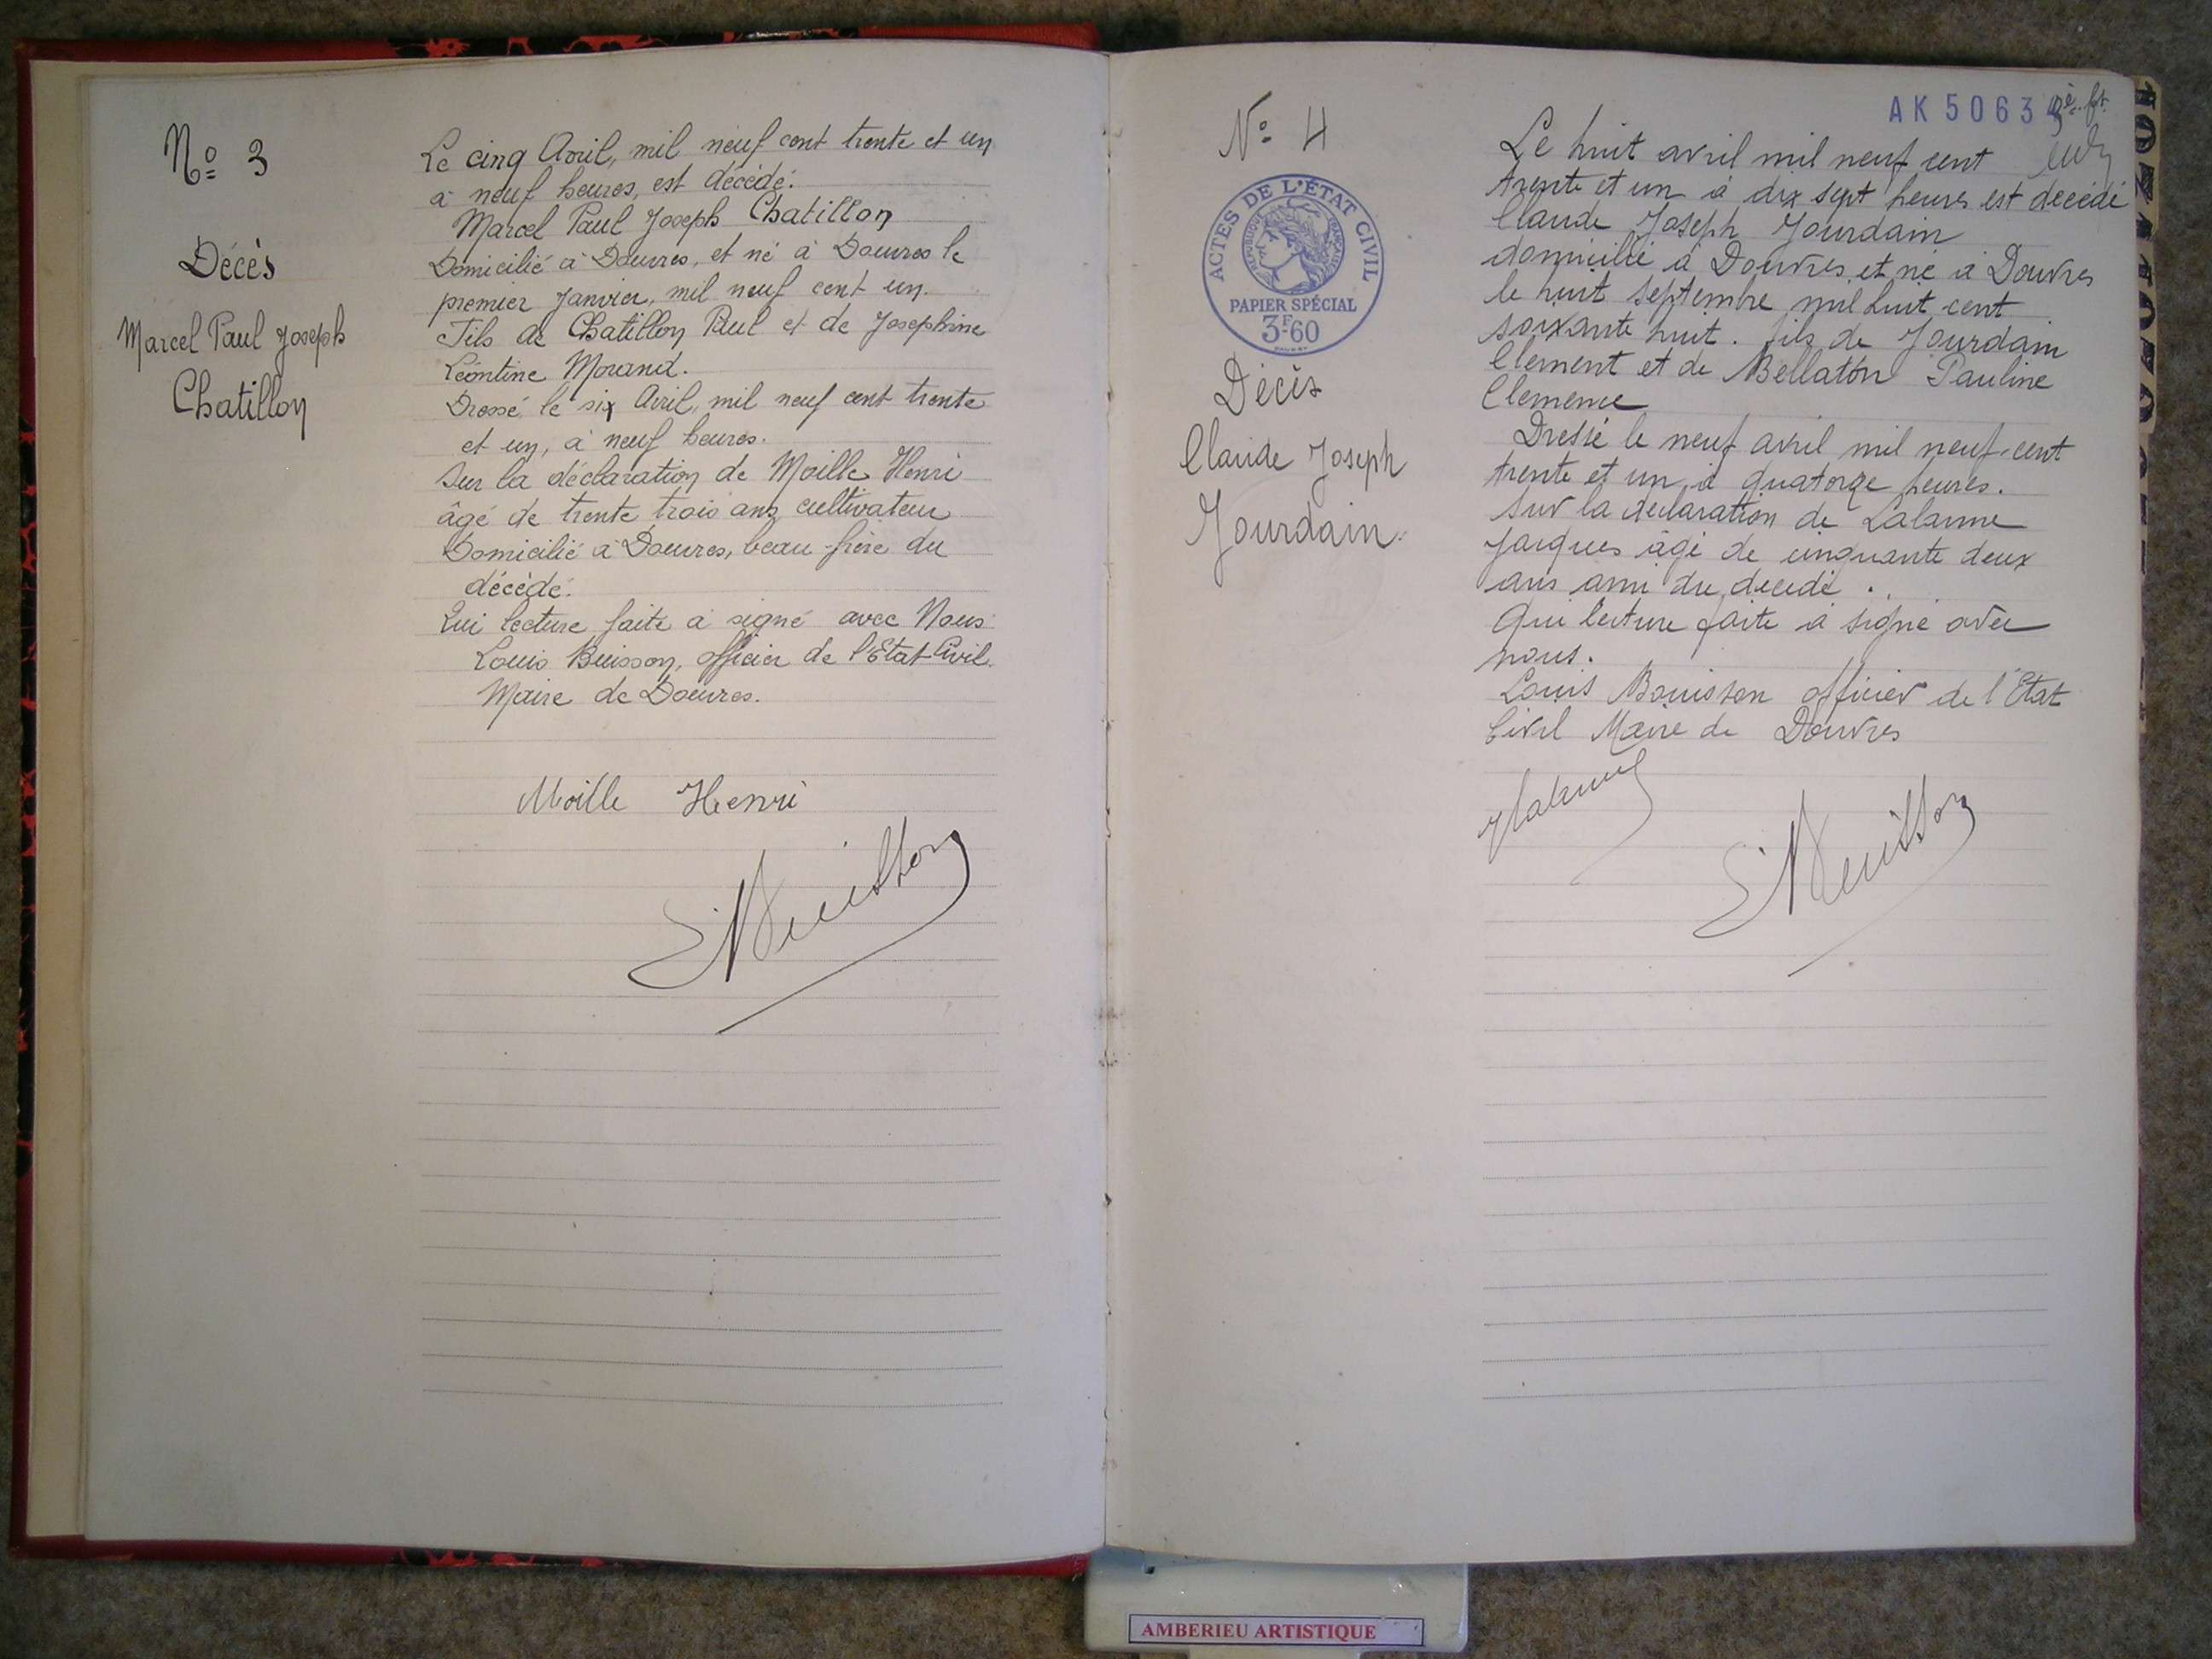 Nº 3
Décès
Marcel Paul Joseph
Chatillon
Le cinq Avril, mil neuf cent trente et un
à neuf heures, est décédé.
Marcel Paul Joseph Chatillon
Domicilié à Douvres, et né à Douvres le
premier Janvier, mil neuf cent un.
Fils de Chatillon Paul et de Josephine
Léontine Morand.
Dressé le six Avril, mil neuf cent trente
et un, à neuf heures.
Sur la déclaration de Moille Henri
âgé de trente trois ans cultivateur
Domicilié à Douvres, beau-frère du
décédé.
Qui lecture faite a signé avec Nous
Louis Buisson, officier de l'Etat Civil
Maire de Douvres.
Moille Henri
Buisson
AK 5063
Nº 4
ACTES DE L'ÉTAT CIVIL
REPUBLIQUE FRANÇAISE
PAPIER SPÉCIAL
3F60
Décès
Claude Joseph
Jourdain.
Le huit avril mil neuf cent
trente et un à dix sept heures est décédé
Claude Joseph Jourdain
domicilié à Douvres et né à Douvres
le huit septembre mil huit cent
soixante huit. fils de Jourdain
Clement et de Bellaton Pauline
Clemence
Dressé le neuf avril mil neuf cent
trente et un à quatorze heures.
Sur la declaration de Lalanne
Jacques âgé de cinquante deux
ans ami du decedé.
Qui lecture faite a signé avec
nous.
Louis Bouisson officier de l'Etat
Civil Maire de Douvres
Lalanne
Buisson
AMBERIEU ARTISTIQUE